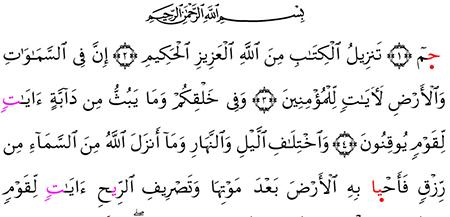 بِسْمِ اللَّهِ الرَّحْمَٰنِ الرَّحِيمِ
حمٓ ﴿١﴾ تَنزِيلُ الْكِتَٰبِ مِنَ اللَّهِ الْعَزِيزِ الْحَكِيمِ ﴿٢﴾ إِنَّ فِى السَّمَٰوَٰتِ
وَالْأَرْضِ لَأٓيَٰتٍ لِّلْمُؤْمِنِينَ ﴿٣﴾ وَفِى خَلْقِكُمْ وَمَا يَبُثُّ مِن دَآبَّةٍ ءَايَٰتٍ
لِّقَوْمٍ يُوقِنُونَ ﴿٤﴾ وَاخْتِلَٰفِ الَّيْلِ وَالنَّهَارِ وَمَآ أَنزَلَ اللَّهُ مِنَ السَّمَآءِ مِن
رِّزْقٍ فَأَحْيَا بِهِ الْأَرْضَ بَعْدَ مَوْتِهَا وَتَصْرِيفِ الرِّيحِ ءَايَٰتٍ لِّقَوْمٍ